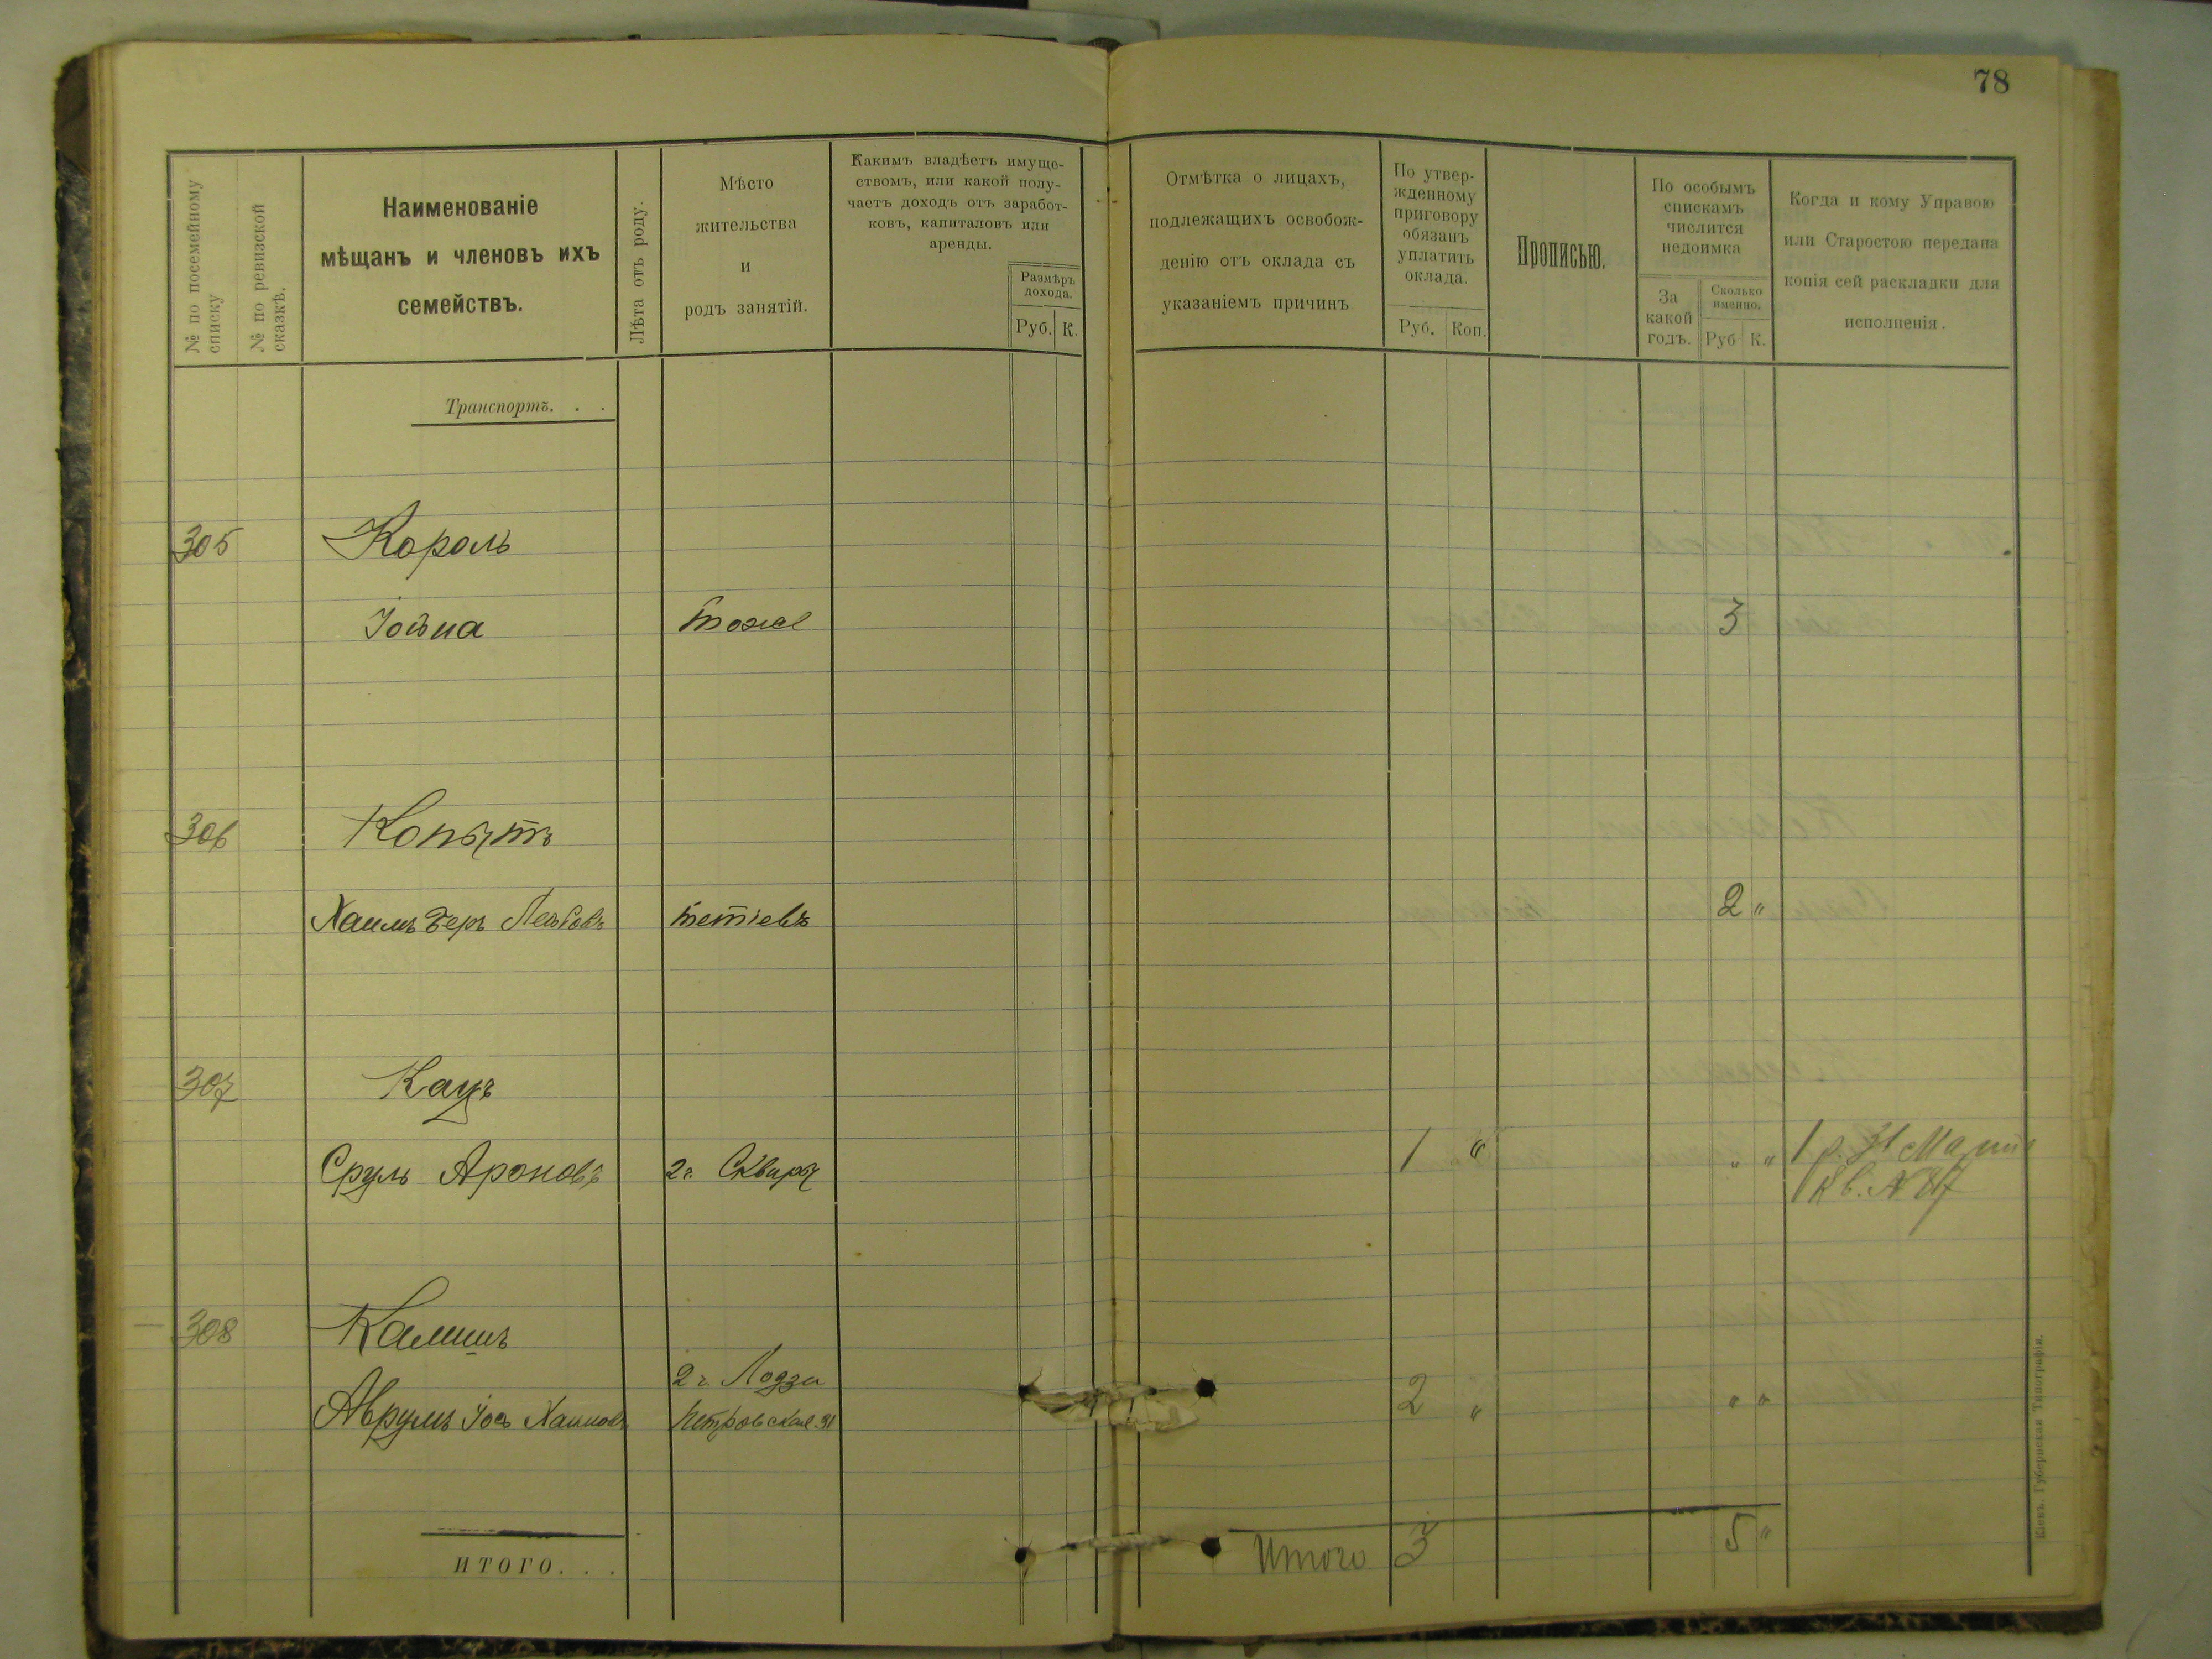 78
№ по посемейному списку
№ по ревизской сказкѣ.
Наименованіе
мѣщанъ и членовъ ихъ
семействъ.
Лѣта отъ роду.
Мѣсто
жительства
и
родъ занятій.
Какимъ владѣетъ имуще-
ствомъ, или какой полу-
чаетъ доходъ отъ заработ-
ковъ, капиталовъ или
аренды.
Размѣръ
дохода.
Руб. К.
Отмѣтка о лицахъ,
подлежащихъ освобож-
денію отъ оклада съ
указаніемъ причинъ
По утвер-
жденному
приговору
обязанъ
уплатить
оклада.
Руб. Коп.
Прописью.
По особымъ
спискамъ
числится
недоимка
За
какой
годъ.
Сколько
именно.
Руб К.
Когда и кому Управою
или Старостою передана
копія сей раскладки для
исполненія.
Транспортъ. . .
305 Король
Іовна тоже 3
306 Копытъ
Хаимъ Беръ Лейбовъ тетіевъ 2 "
307 Кацъ
Сруль Ароновъ 2г. Сквиръ 1 " " " 1 р. 31
Кв. № 87
308 Камишъ
2 г. Лодзи
Аврумъ Іосъ Хаимовъ Петровская 91 2 " " "
ИТОГО. . .
Итого 3 5 "
Кіевъ. Губернская Типографія.